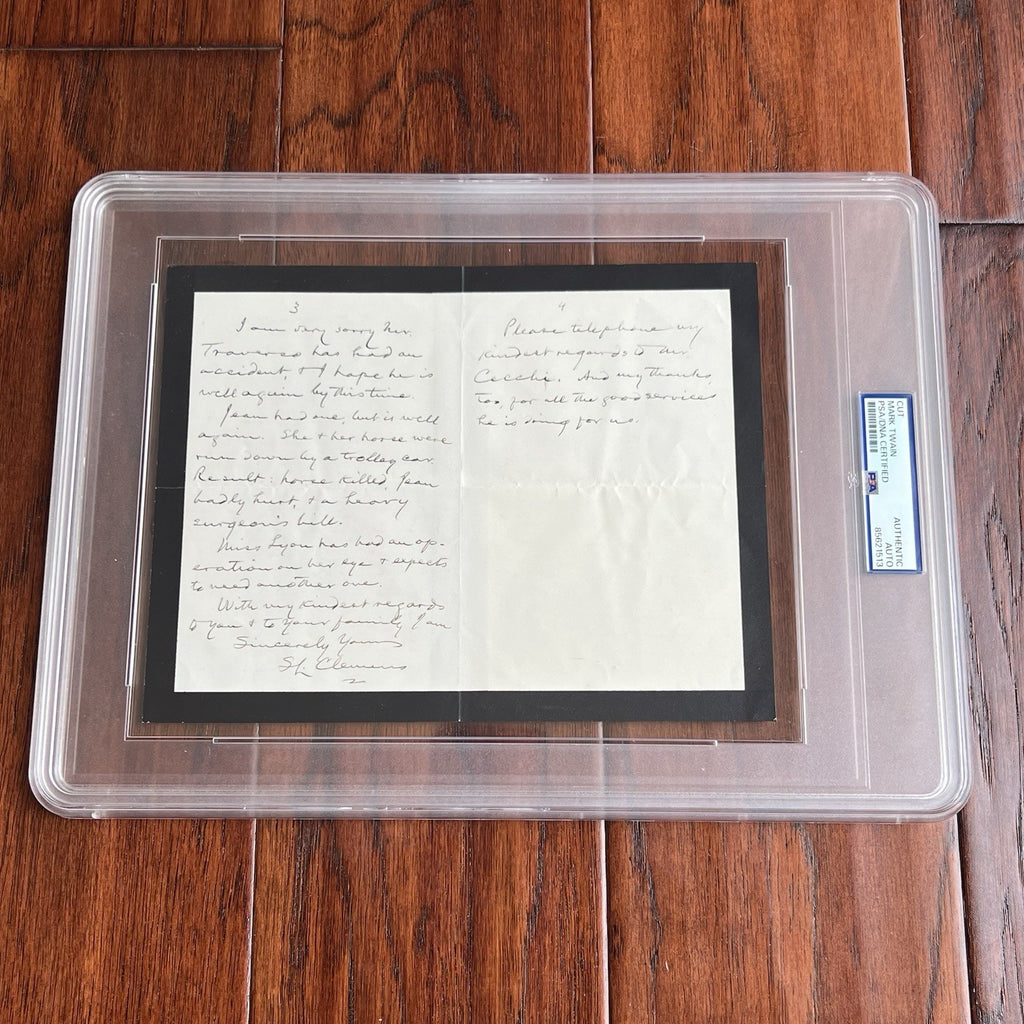 3
I am very sorry Mr.
Traverso has had an
accident, & I hope he is
well again by this time.
Jean had one, but is well
again. She & her horse were
run down by a trolley car.
Result: horse killed, Jean
badly hurt, & a heavy
surgeon's bill.
Miss Lyon has had an op-
eration on her eye & expects
to need another one.
With my kindest regards
to you & to your family I am
Sincerely Yours
SL Clemens
4
Please telephone my
kindest regards to Mr.
Cecchi. And my thanks,
too, for all the good services
he is doing for us.
CUT
MARK TWAIN
PSA/DNA CERTIFIED
PSA
AUTHENTIC
AUTO
85621513